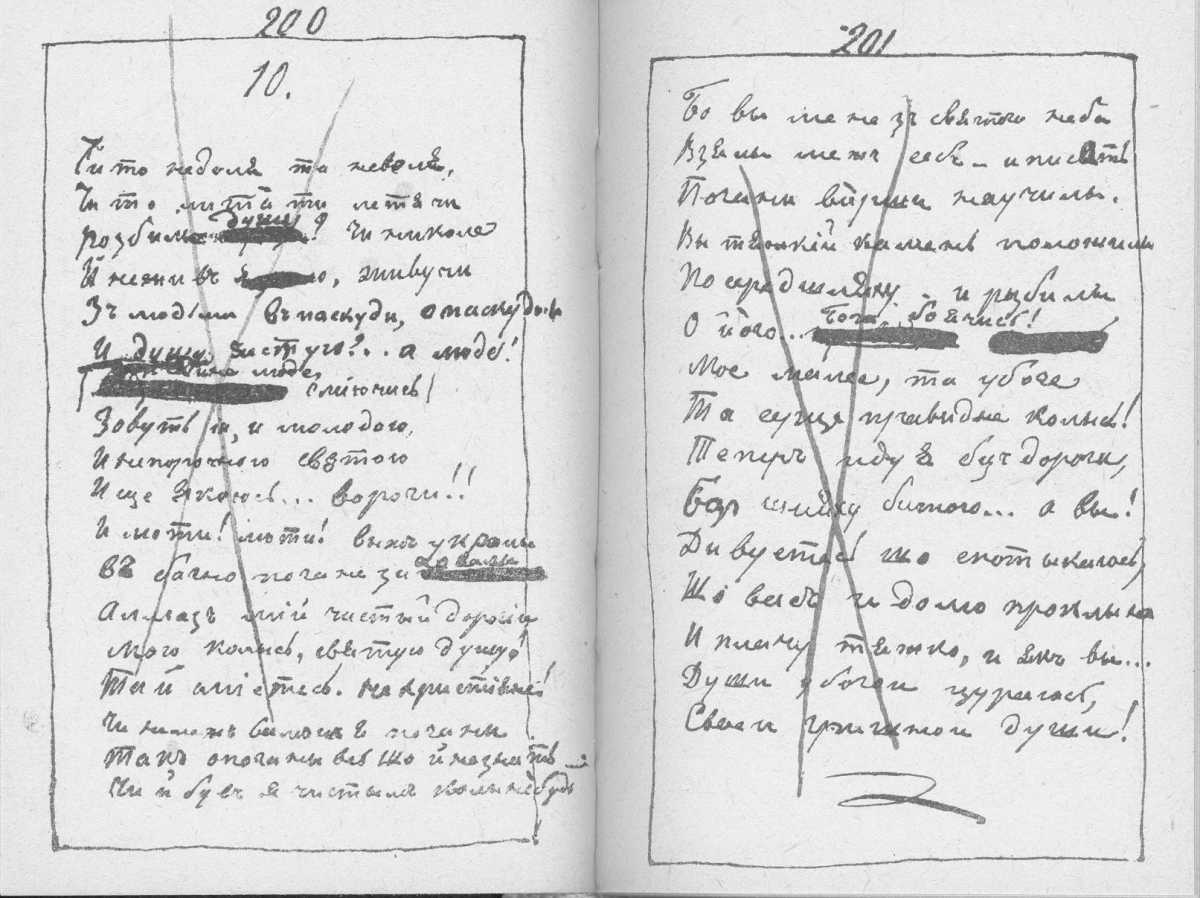 200
10.
Чи то недоля та неволя,
Чи то лита ти летячи
розбилы душу? Чи николы
Й не жив въ я ю, живучи
Зъ людьми въ паскуди, опаскудывъ
И душу чистую?... а люде!
люде, смiючись
Зовуть ии, и молодою,
И непорочною святою
И ще якоюсь... вороги!!
И люти! люти! вы жъ укралы
Въ багно погане за
Алмазъ мiй чистый дорогiй
Мою колысь, святую душу!
Та й смiетесь. нехристiяне!
Чи не межъ вамы жъ я поганы
Такъ опоганывсь що й не знать
Чи й бувъ я чистымъ колы небудь
201
Бо вы мене зъ святого неба
Взялы межъ себе – и писать
Погани вiрши научилы.
Вы тяжкiй камень положилы
Посередъ шляху – и розбилы
О його... Бога боячись!
Мое малее, та убоге
Та серце праведне колысь!
Теперь иду я безъ дороги,
Безъ шляху битого... а вы!
Дивуетесь що спотыкаюсь,
Що васъ и долю проклынаю
И плачу тяжко, и якъ вы...
Души убогои цураюсь,
Своеи грiшнои души!